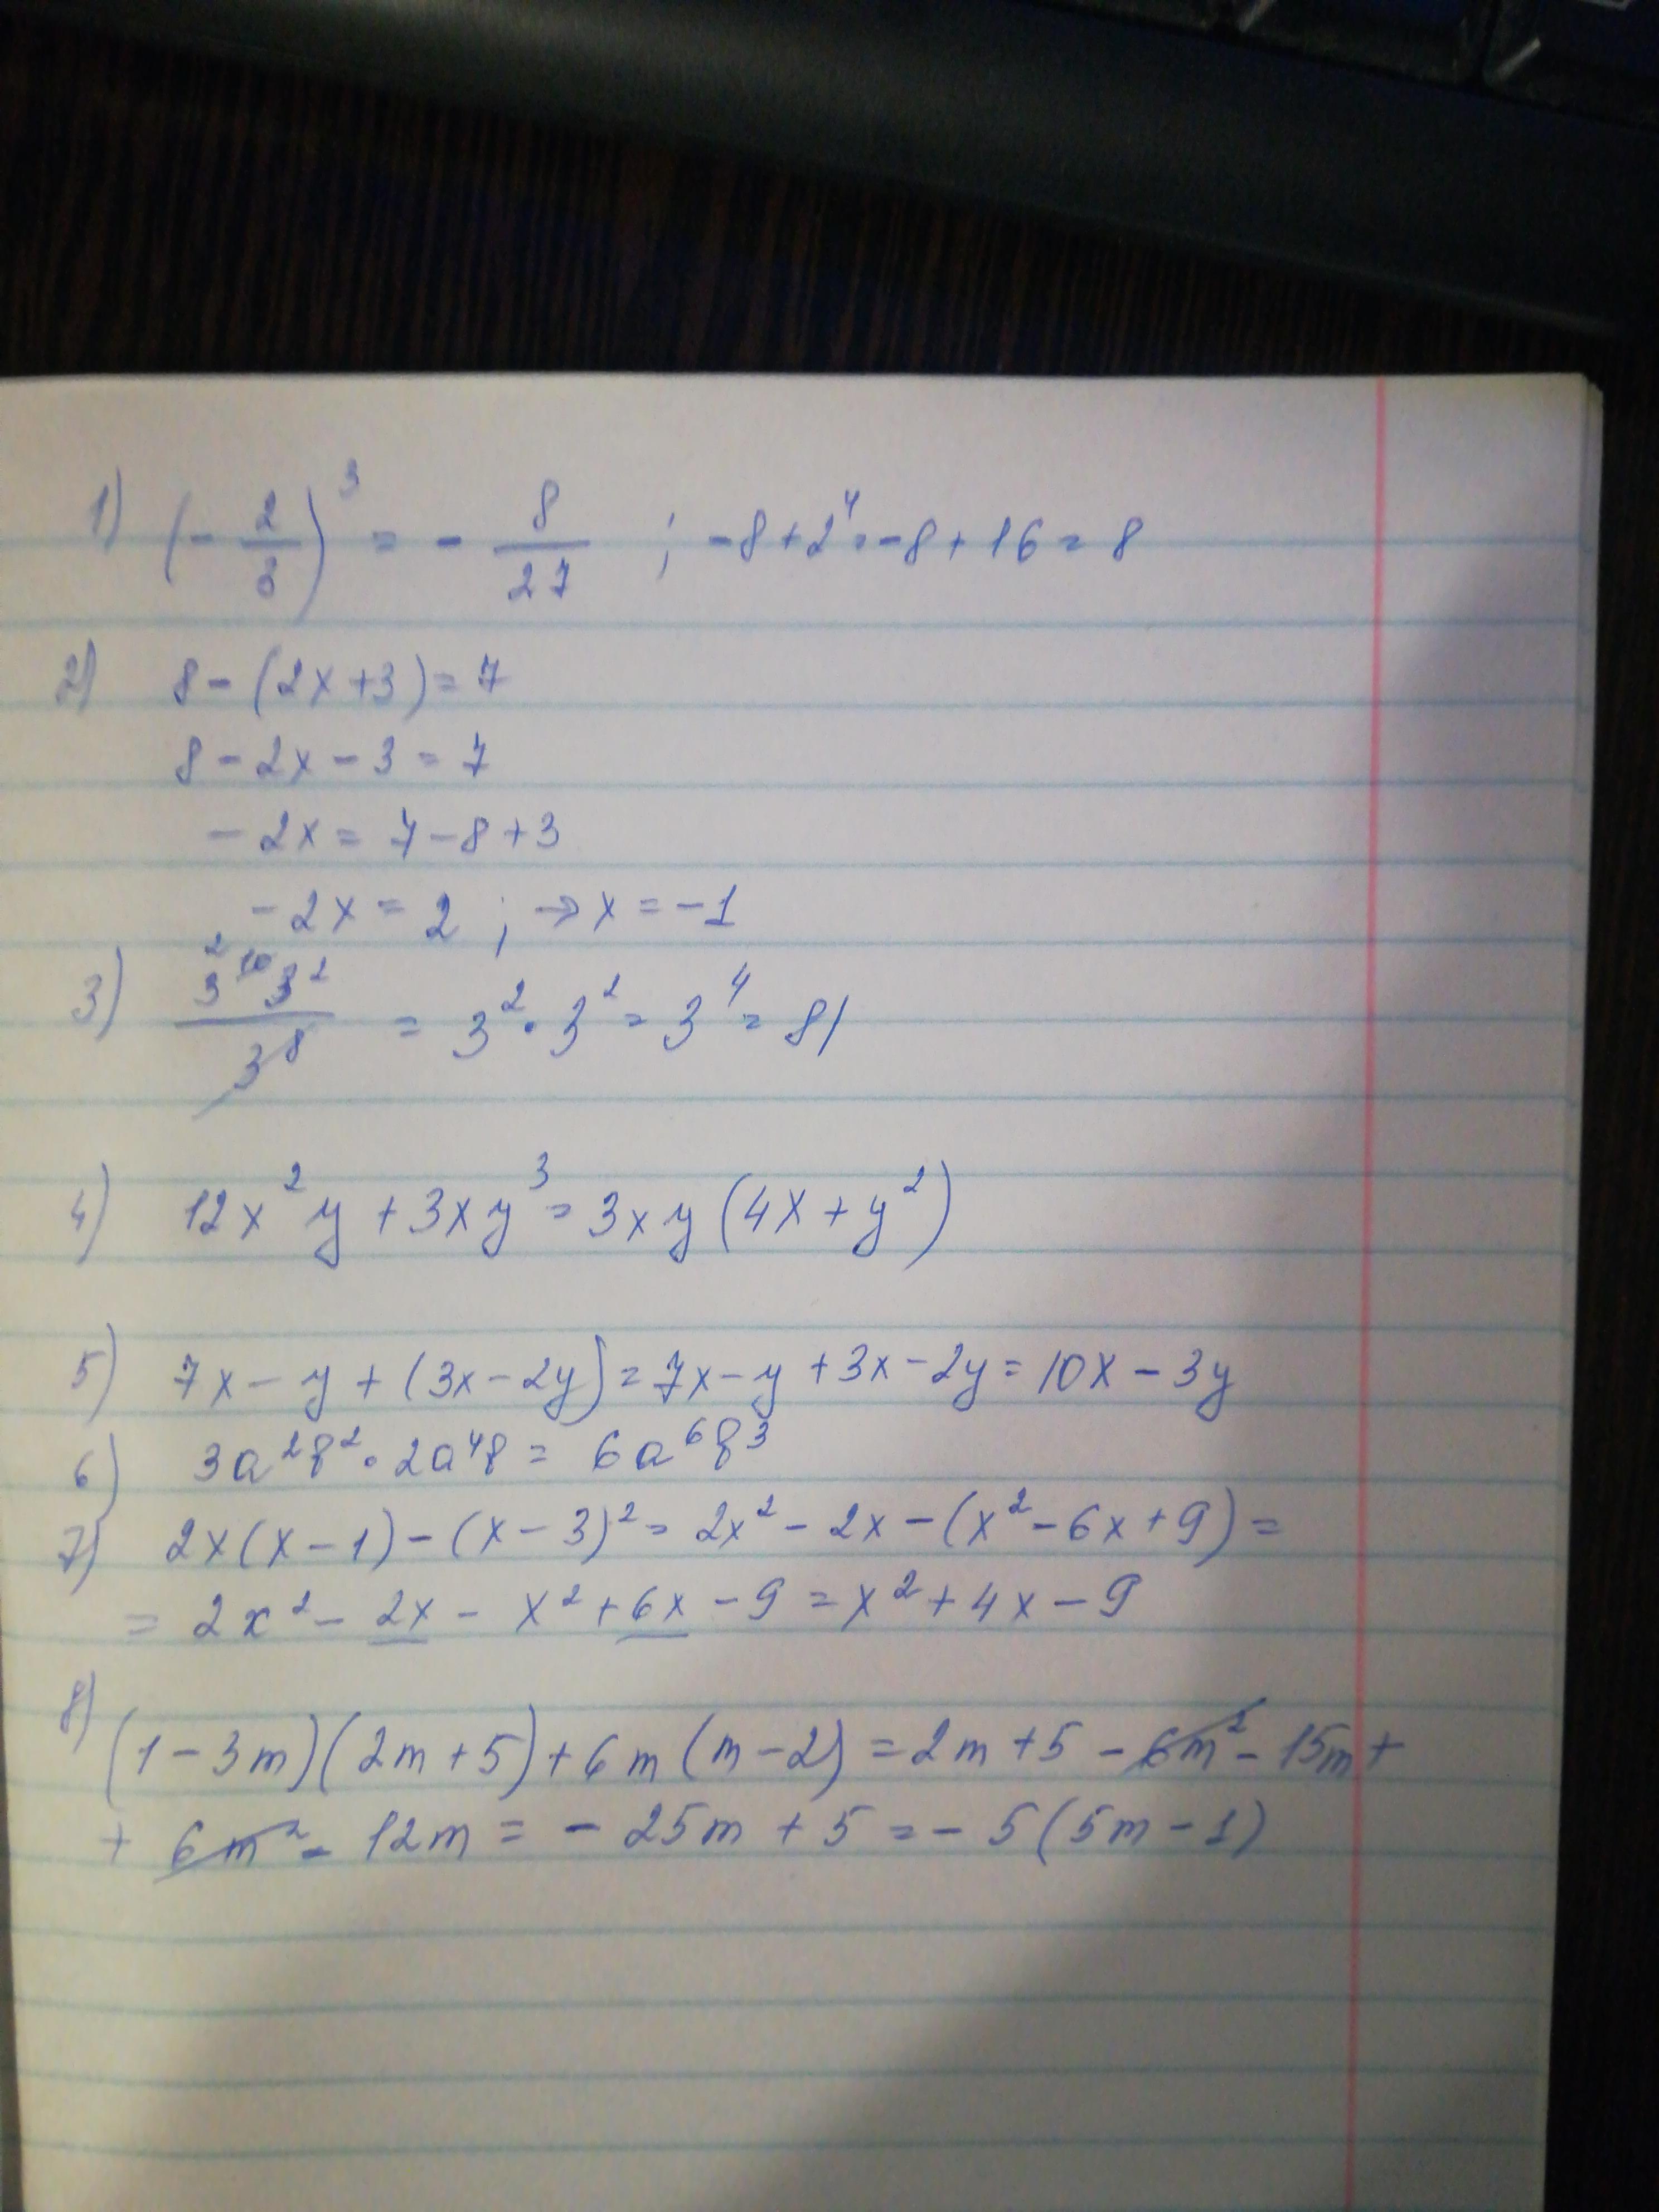 1) (- 2/3)³ = - 8/27 ; -8+2⁴=-8+16=8
2) 8-(2x+3)=7
8-2x-3=7
-2x=7-8+3
-2x=2 ; → x=-1
3) 3¹⁰3²/3⁸ = 3²·3²=3⁴=81
4) 12x²y+3xy³=3xy(4x+y²)
5) 7x-y+(3x-2y)=7x-y+3x-2y=10x-3y
6) 3a²b²·2a⁴b=6a⁶b³
7) 2x(x-1)-(x-3)²=2x²-2x-(x²-6x+9)=
=2x²-2x-x²+6x-9=x²+4x-9
8) (1-3m)(2m+5)+6m(m-2)=2m+5-6m²-15m+
+6m²-12m=-25m+5=-5(5m-1)